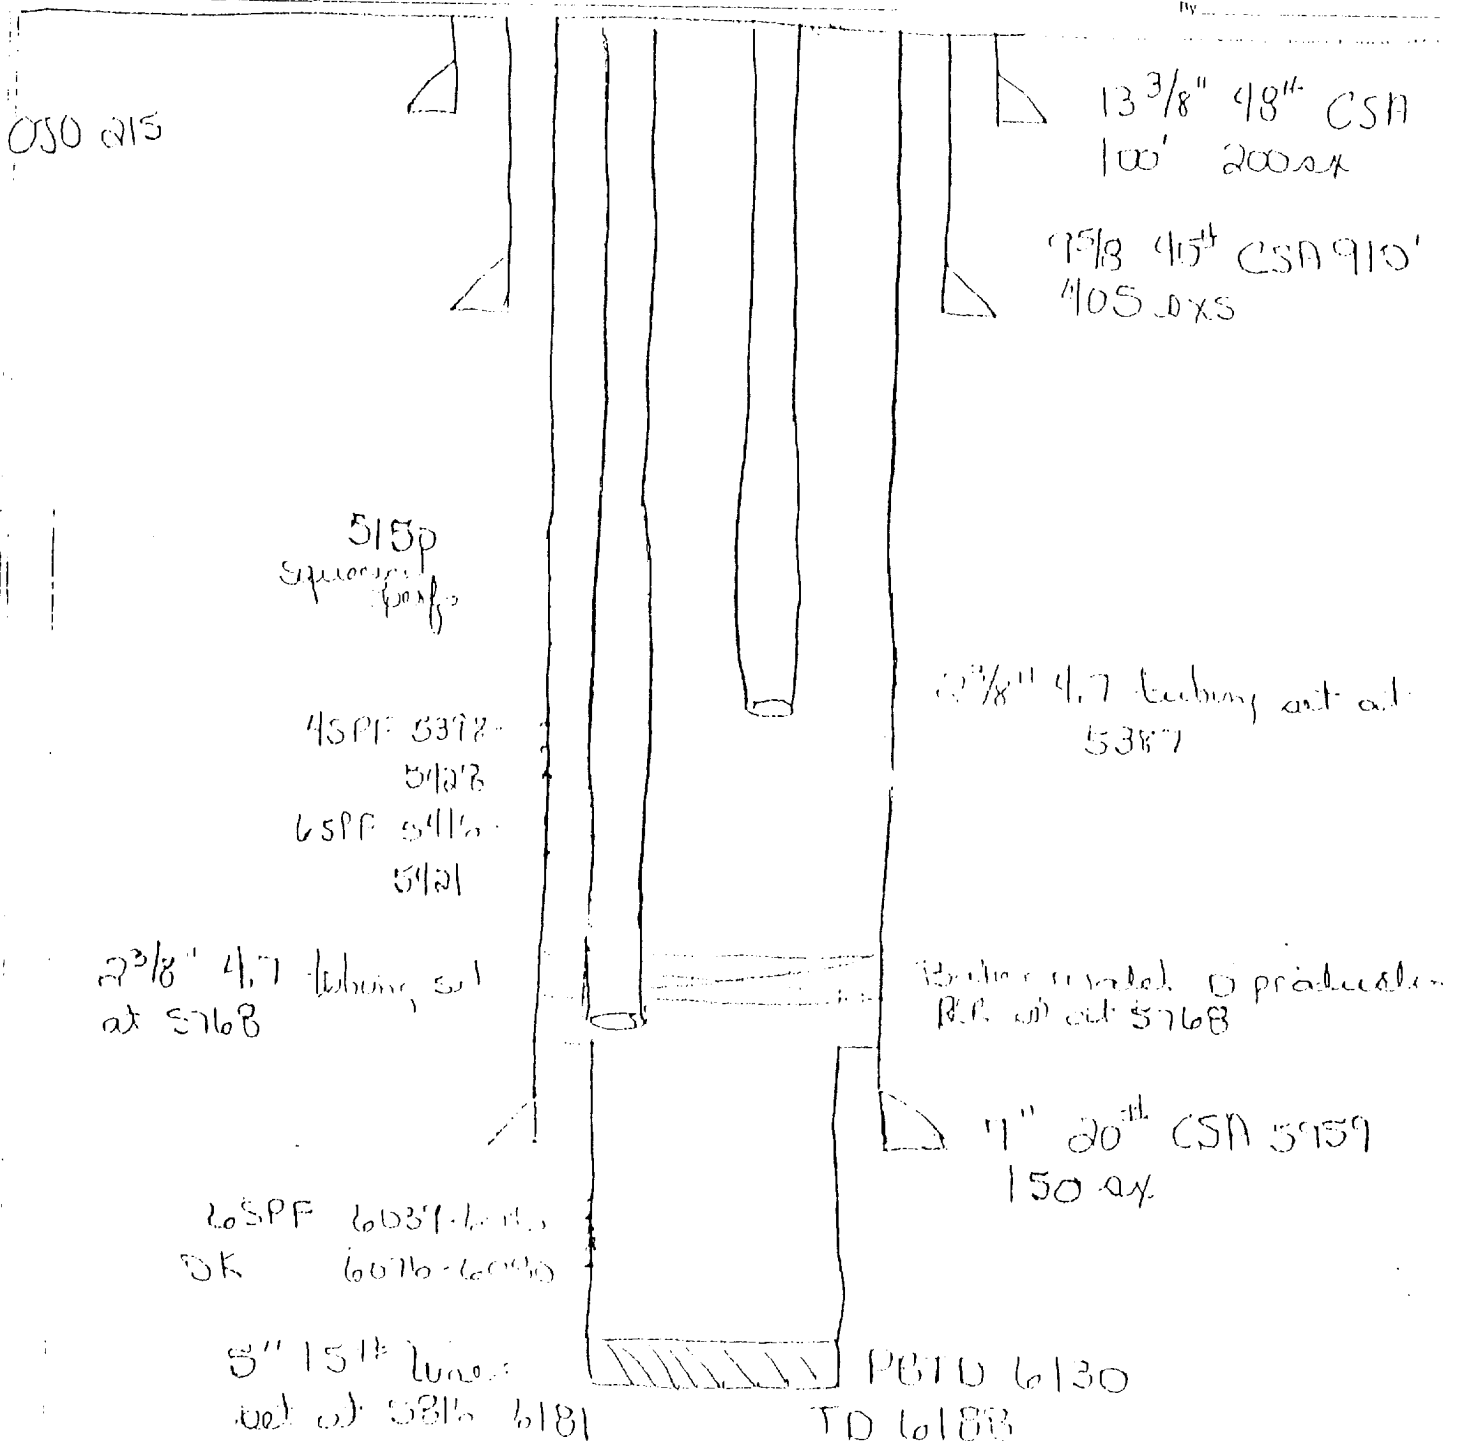 By
OSO 215
13 3/8" 48# CSA
100' 200 sx
9 5/8 40# CSA 910'
405 sxs
515p
perfs
4SPF 5398-
5428
6SPF 5416-
5421
2 3/8" 4.7 tubing set at
5387
2 3/8" 4.7 tubing set
at 5768
production
at 5768
7" 20# CSA 5959
150 sx
6SPF 6039-
DK 6076-6090
5" 15# liner
set at 5816 6181
PBTD 6130
TD 6188